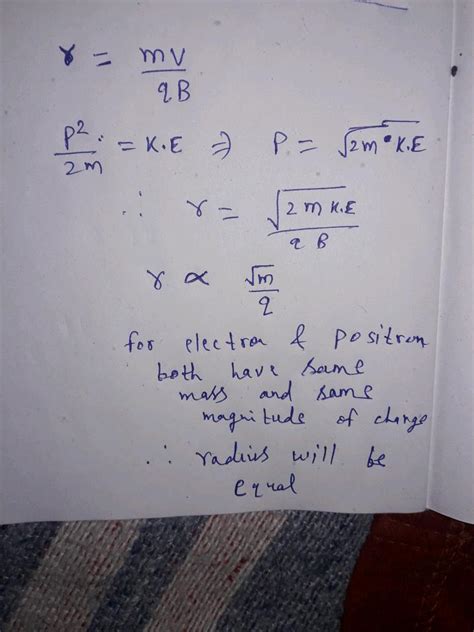 r = mv / qB
P²/2m = K.E ⇒ P = √2m K.E
∴ r = √2 m K.E / q B
r ∝ √m / q
for electron & positron
both have same
mass and same
magnitude of change
∴ radius will be
equal